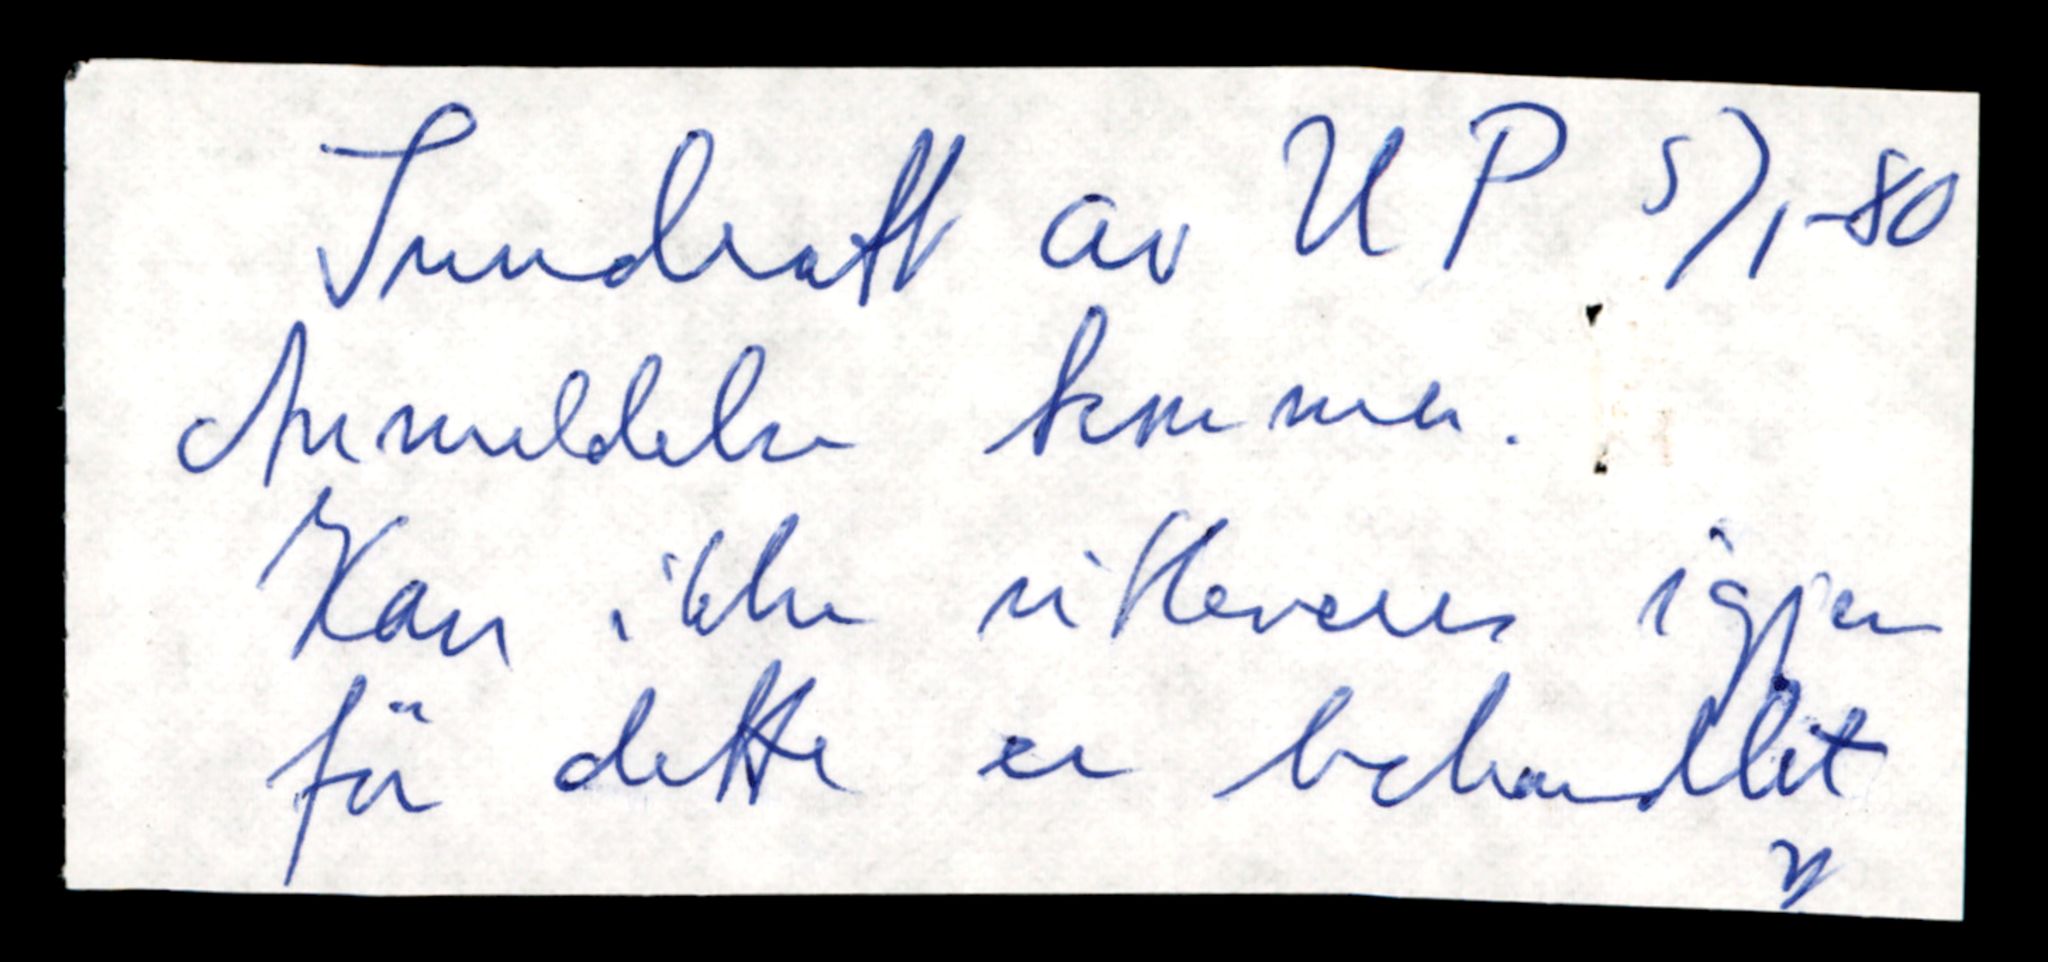 Inndratt av UP 5/1-80
Anmeldelse kommer.
Kan ikke utleveres igjen
för dette er behandlet